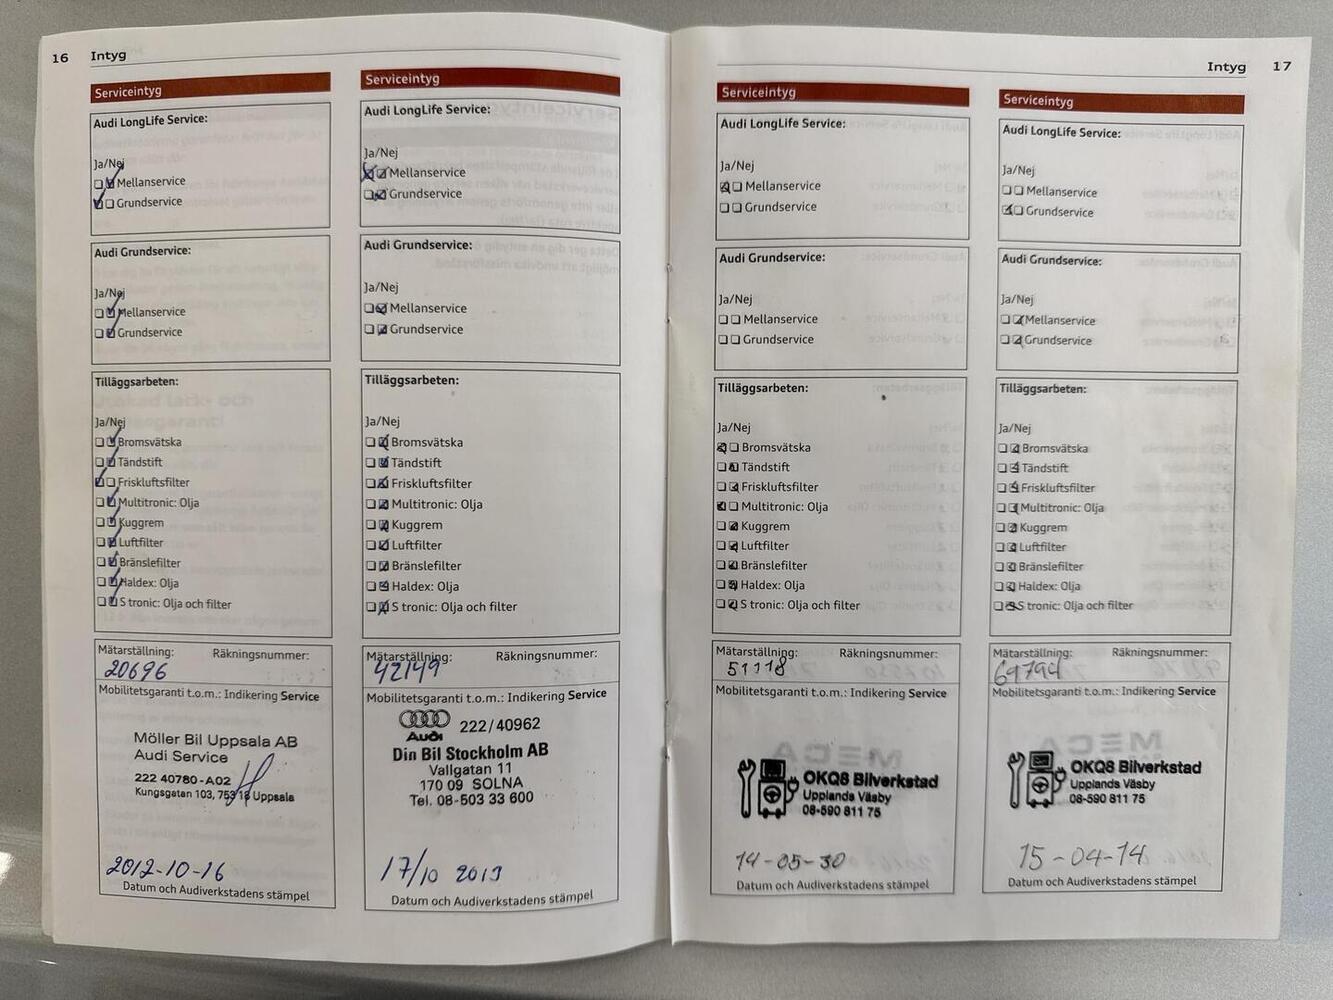 16 Intyg
Serviceintyg
Audi LongLife Service:
Ja/Nej
Mellanservice
Grundservice
Audi Grundservice:
Ja/Nej
Mellanservice
Grundservice
Tilläggsarbeten:
Ja/Nej
Bromsvätska
Tändstift
Friskluftsfilter
Multitronic: Olja
Kuggrem
Luftfilter
Bränslefilter
Haldex: Olja
S tronic: Olja och filter
Mätarställning: Räkningsnummer:
20696
Mobilitetsgaranti t.o.m.: Indikering Service
Möller Bil Uppsala AB
Audi Service
222 40780-A02
Kungsgatan 103, 753 18 Uppsala
2012-10-16
Datum och Audiverkstadens stämpel
Serviceintyg
Audi LongLife Service:
Ja/Nej
Mellanservice
Grundservice
Audi Grundservice:
Ja/Nej
Mellanservice
Grundservice
Tilläggsarbeten:
Ja/Nej
Bromsvätska
Tändstift
Friskluftsfilter
Multitronic: Olja
Kuggrem
Luftfilter
Bränslefilter
Haldex: Olja
S tronic: Olja och filter
Mätarställning: Räkningsnummer:
42149
Mobilitetsgaranti t.o.m.: Indikering Service
Audi 222/40962
Din Bil Stockholm AB
Vallgatan 11
170 09 SOLNA
Tel. 08-503 33 600
17/10 2013
Datum och Audiverkstadens stämpel
Intyg 17
Serviceintyg
Audi LongLife Service:
Ja/Nej
Mellanservice
Grundservice
Audi Grundservice:
Ja/Nej
Mellanservice
Grundservice
Tilläggsarbeten:
Ja/Nej
Bromsvätska
Tändstift
Friskluftsfilter
Multitronic: Olja
Kuggrem
Luftfilter
Bränslefilter
Haldex: Olja
S tronic: Olja och filter
Mätarställning: Räkningsnummer:
51118
Mobilitetsgaranti t.o.m.: Indikering Service
OKQ8 Bilverkstad
Upplands Väsby
08-590 811 75
14-05-30
Datum och Audiverkstadens stämpel
Serviceintyg
Audi LongLife Service:
Ja/Nej
Mellanservice
Grundservice
Audi Grundservice:
Ja/Nej
Mellanservice
Grundservice
Tilläggsarbeten:
Ja/Nej
Bromsvätska
Tändstift
Friskluftsfilter
Multitronic: Olja
Kuggrem
Luftfilter
Bränslefilter
Haldex: Olja
S tronic: Olja och filter
Mätarställning: Räkningsnummer:
69794
Mobilitetsgaranti t.o.m.: Indikering Service
OKQ8 Bilverkstad
Upplands Väsby
08-590 811 75
15-04-14
Datum och Audiverkstadens stämpel